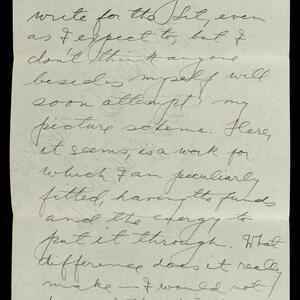 write for the Lit, even
as I expect to, but I
don't think anyone
besides myself will
soon attempt my
picture scheme. Here,
it seems, is a work for
which I am peculiarly
fitted, having the funds
and the energy to
put it through. What
difference does it really
make — I would not